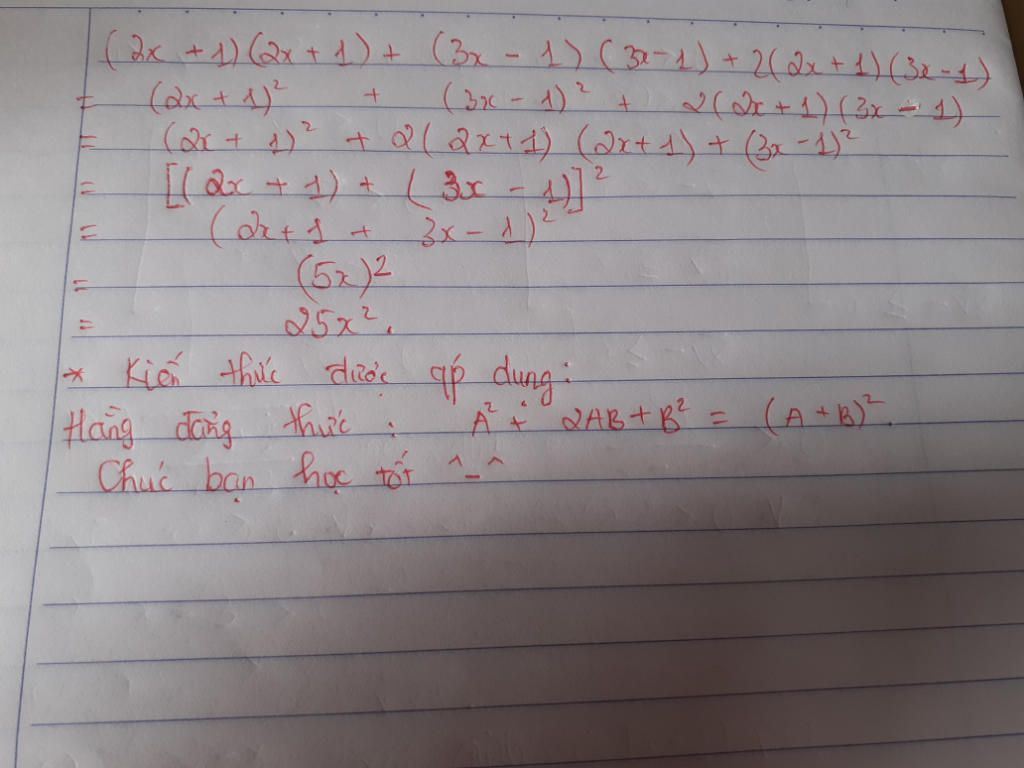 (2x + 1)(2x + 1) + (3x - 1)(3x - 1) + 2(2x + 1)(3x - 1)
= (2x + 1)² + (3x - 1)² + 2(2x + 1)(3x - 1)
= (2x + 1)² + 2(2x + 1)(2x + 1) + (3x - 1)²
= [(2x + 1) + (3x - 1)]²
= (2x + 1 + 3x - 1)²
= (5x)²
= 25x².
* Kiến thức được áp dụng:
Hằng đẳng thức : A² + 2AB + B² = (A + B)².
Chúc bạn học tốt ^_^